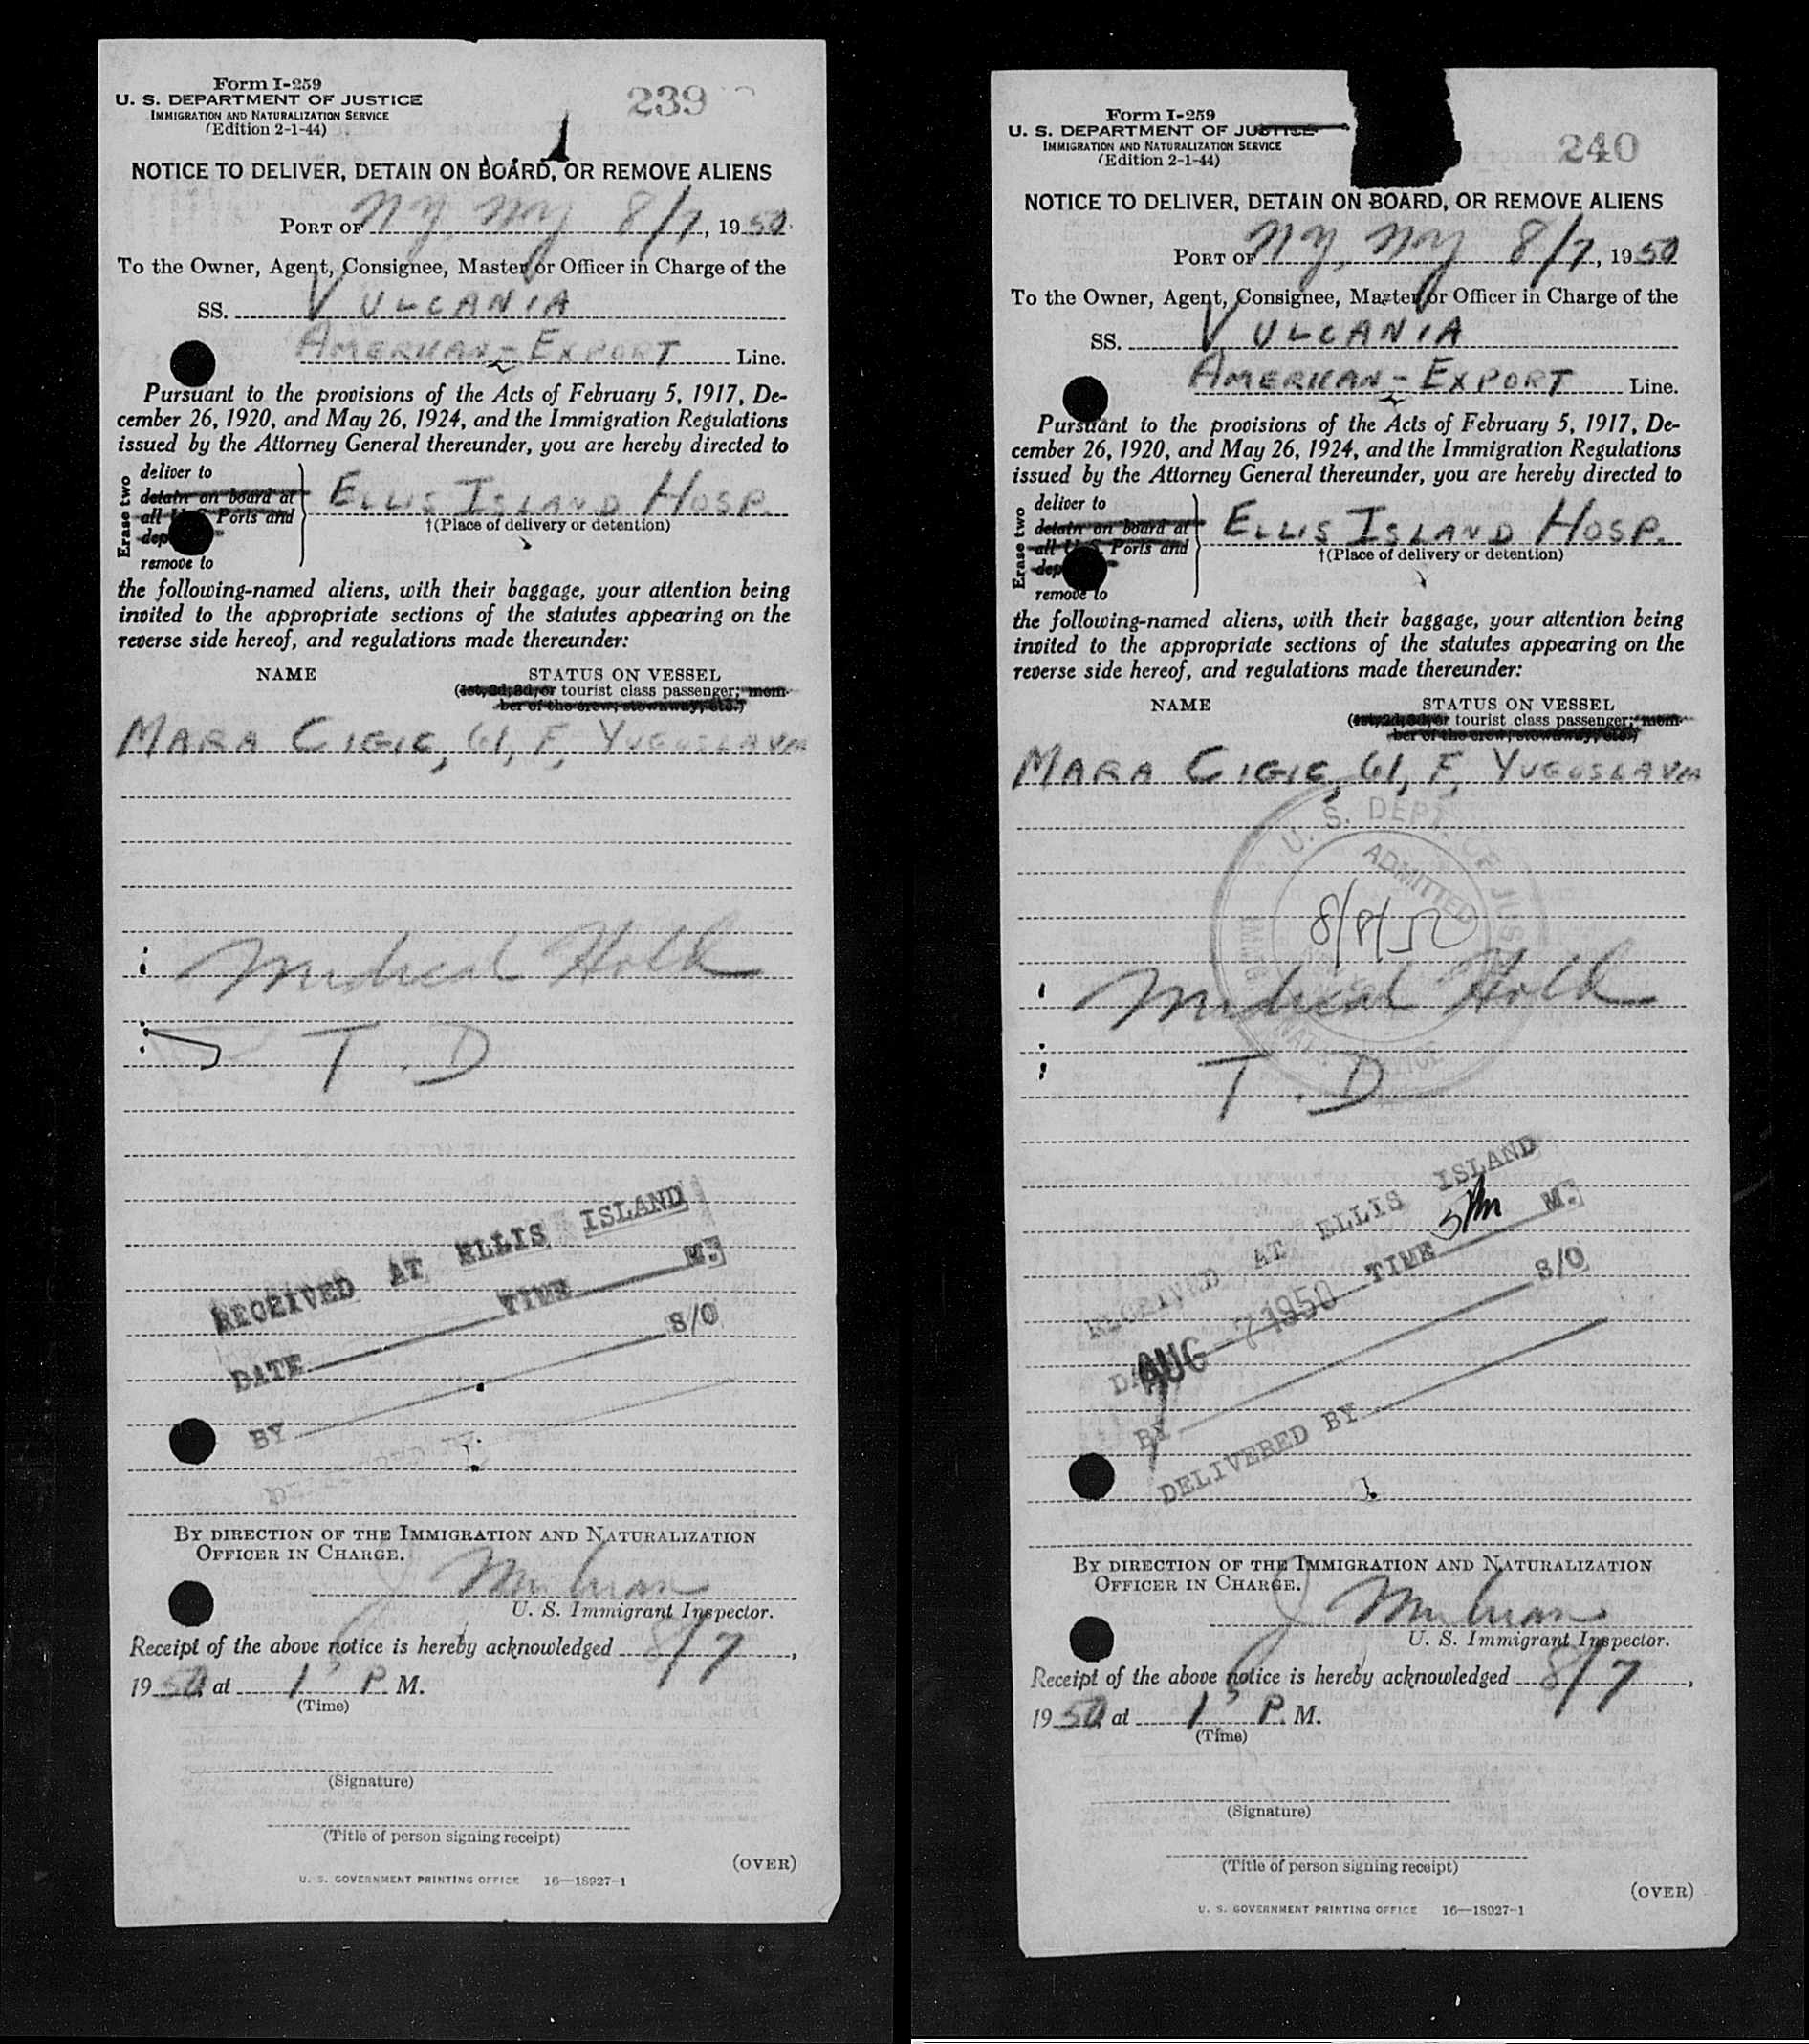 Form I-259
U. S. DEPARTMENT OF JUSTICE
IMMIGRATION AND NATURALIZATION SERVICE
(Edition 2-1-44)
239
NOTICE TO DELIVER, DETAIN ON BOARD, OR REMOVE ALIENS
PORT OF NY, NY 8/7, 1950
To the Owner, Agent, Consignee, Master or Officer in Charge of the
SS. VULCANIA
AMERICAN-EXPORT Line.
Pursuant to the provisions of the Acts of February 5, 1917, De-
cember 26, 1920, and May 26, 1924, and the Immigration Regulations
issued by the Attorney General thereunder, you are hereby directed to
Erase two
deliver to
detain on board at
all U S Ports and
dep
remove to
ELLIS ISLAND HOSP.
†(Place of delivery or detention)
the following-named aliens, with their baggage, your attention being
invited to the appropriate sections of the statutes appearing on the
reverse side hereof, and regulations made thereunder:
NAME STATUS ON VESSEL
(1st, 2d, 3d, or tourist class passenger; mem-
ber of the crew, stowaway, etc.)
MARA CIGIC, 61, F, YUGOSLAVIA
Medical Hold
T.D
RECEIVED AT ELLIS ISLAND
DATE TIME M.
BY S/O
DELIVERED BY
BY DIRECTION OF THE IMMIGRATION AND NATURALIZATION
OFFICER IN CHARGE.
U. S. Immigrant Inspector.
Receipt of the above notice is hereby acknowledged 8/7,
1950 at 1 P. M.
(Time)
(Signature)
(Title of person signing receipt)
(OVER)
U. S. GOVERNMENT PRINTING OFFICE 16—18927-1
Form I-259
U. S. DEPARTMENT OF JUSTICE
IMMIGRATION AND NATURALIZATION SERVICE
(Edition 2-1-44)
240
NOTICE TO DELIVER, DETAIN ON BOARD, OR REMOVE ALIENS
PORT OF NY, NY 8/7, 1950
To the Owner, Agent, Consignee, Master or Officer in Charge of the
SS. VULCANIA
AMERICAN-EXPORT Line.
Pursuant to the provisions of the Acts of February 5, 1917, De-
cember 26, 1920, and May 26, 1924, and the Immigration Regulations
issued by the Attorney General thereunder, you are hereby directed to
Erase two
deliver to
detain on board at
all U S. Ports and
dep
remove to
ELLIS ISLAND HOSP.
†(Place of delivery or detention)
the following-named aliens, with their baggage, your attention being
invited to the appropriate sections of the statutes appearing on the
reverse side hereof, and regulations made thereunder:
NAME STATUS ON VESSEL
(1st, 2d, 3d, or tourist class passenger; mem-
ber of the crew, stowaway, etc.)
MARA CIGIC, 61, F, YUGOSLAVIA
U. S. DEPT. OF JUSTICE
ADMITTED
8/8/50
Medical Hold
T.D
RECEIVED AT ELLIS ISLAND
DATE AUG 7 1950 TIME M.
BY S/O
DELIVERED BY
BY DIRECTION OF THE IMMIGRATION AND NATURALIZATION
OFFICER IN CHARGE.
U. S. Immigrant Inspector.
Receipt of the above notice is hereby acknowledged 8/7,
1950 at 1 P. M.
(Time)
(Signature)
(Title of person signing receipt)
(OVER)
U. S. GOVERNMENT PRINTING OFFICE 16—18927-1